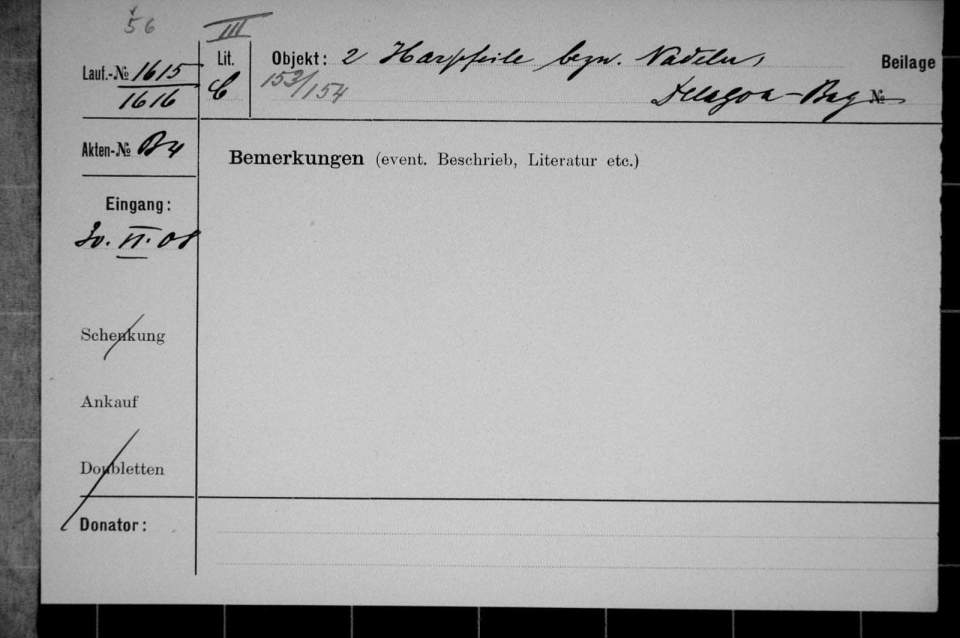 56
III
Lauf.-№ 1615
1616
Lit.
C
153/154
Objekt: 2 Haarpfeile bezw. Nadeln,
Delagoa-Bay
Beilage
№
Akten-№ B4
Bemerkungen (event. Beschrieb, Literatur etc.)
Eingang:
30. VI. 08
Schenkung
Ankauf
Doubletten
Donator: